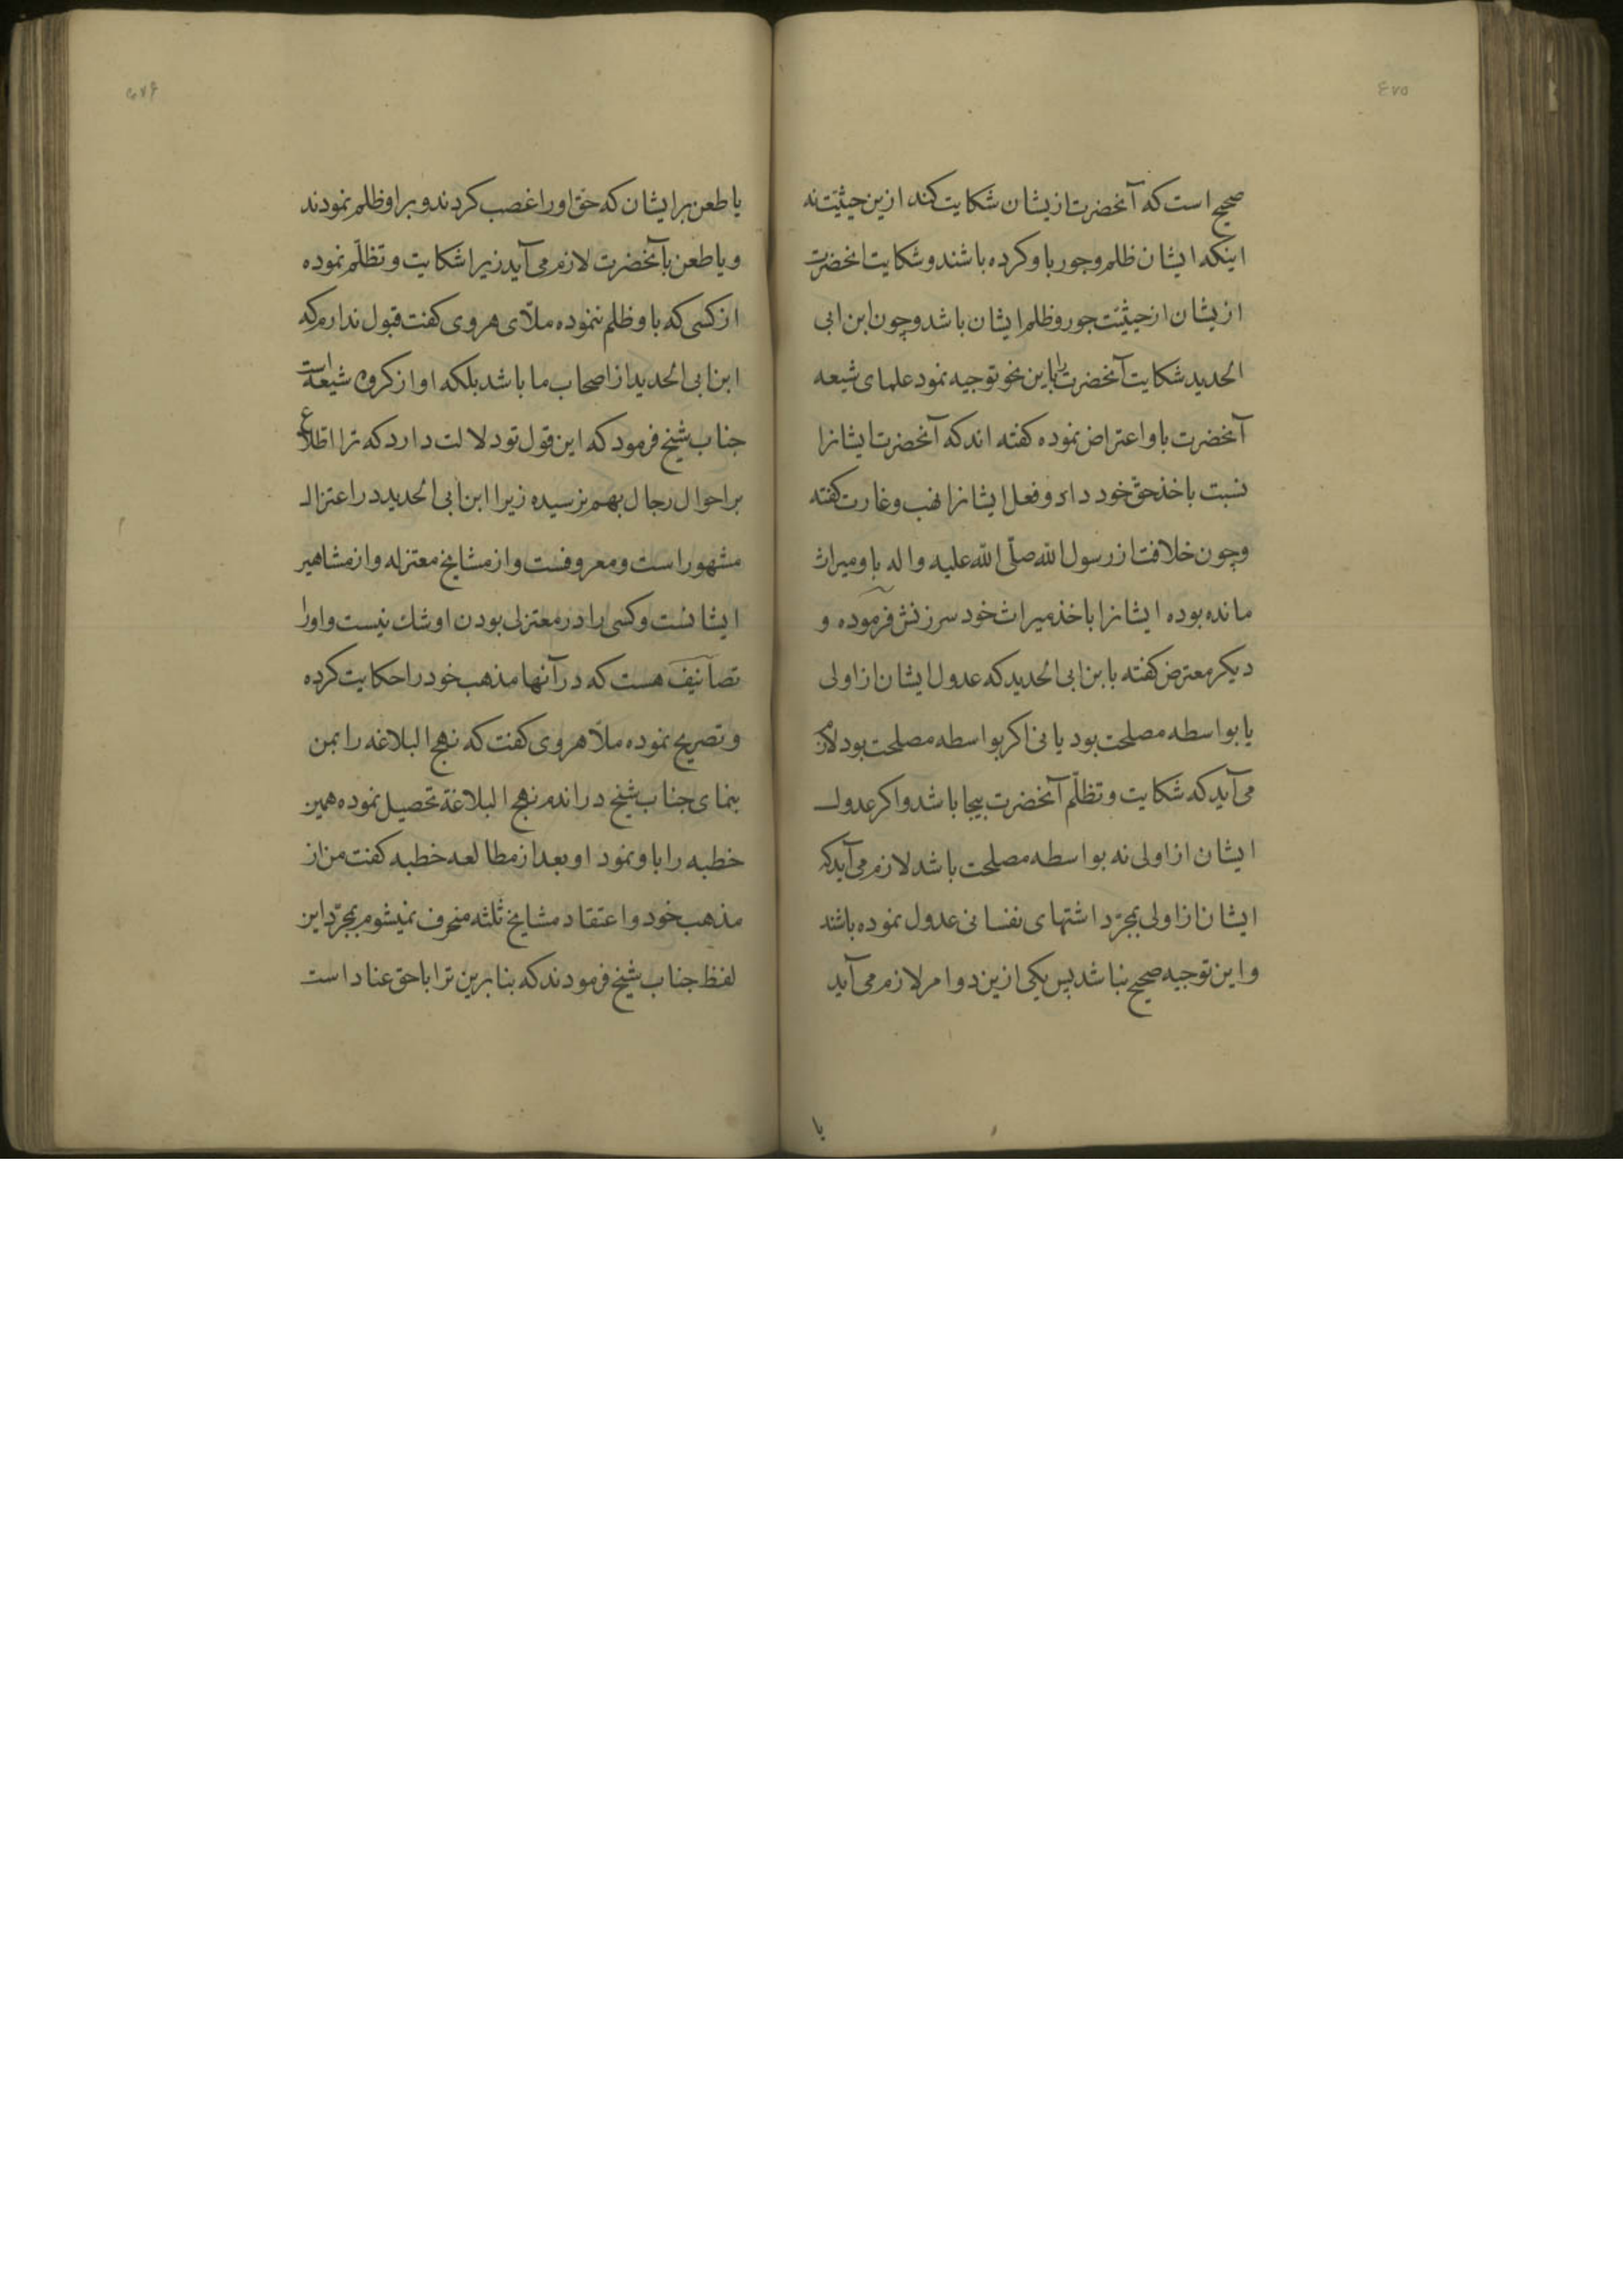 ٤٧٥
صحیح است که آنحضرت ازیشان شکایت کند ازین حیثیت نه
اینکه ایشان ظلم و جور باو کرده باشند و شکایت انحضرت
ازیشان از حیثیت جور و ظلم ایشان باشد و چون ابن ابی
الحدید شکایت آنحضرت را باین نحو توجیه نمود علمای شیعه
آنحضرت باو اعتراض نموده کفته اند که آنحضرت ایشانرا
نسبت باخذ حق خود داد و فعل ایشانرا نهب و غارت کفته
و چون خلافت از رسول الله صلّی الله علیه واله باو میراث
مانده بوده ایشانرا باخذ میراث خود سرزنش فرموده و
دیکر معترض کفته بابن ابی الحدید که عدول ایشان از اولی
یا بواسطه مصلحت بود یا نی اکر بواسطه مصلحت بود لازم
می آید که شکایت و تظلّم آنحضرت بیجا باشد و اکر عدول
ایشان از اولی نه بواسطه مصلحت باشد لازم می آید که
ایشان از اولی بمجرّد اشتهای نفسانی عدول نموده باشند
و این توجیه صحیح نباشد پس یکی ازین دو امر لازم می آید
یا
٤٧۶
یا طعن بر ایشان که حق او را غصب کردند و بر او ظلم نمودند
و یا طعن بآنحضرت لازم می آید زیرا شکایت و تظلّم نموده
از کسی که باو ظلم ننموده ملّای هروی کفت قبول ندارم که
ابن ابی الحدید از اصحاب ما باشد بلکه او از کروه شیعه است
جناب شیخ فرمود که این قول تو دلالت دارد که ترا اطّلاع
بر احوال رجال بهم نرسیده زیرا ابن ابی الحدید در اعتزال
مشهور است و معروفست و از مشایخ معتزله و از مشاهیر
ایشانست و کسی را در معتزلی بودن او شك نیست و او را
تصانیف هست که در آنها مذهب خود را حکایت کرده
و تصریح نموده ملّا هروی کفت که نهج البلاغه را بمن
بنمای جناب شیخ در اندم نهج البلاغة تحصیل نموده همین
خطبه را باو نمود او بعد از مطالعه خطبه کفت من از
مذهب خود و اعتقاد مشایخ ثلثه منحرف نمیشوم بمجرّد این
لفظ جناب شیخ فرمودند که بنابرین ترا با حق عناد است